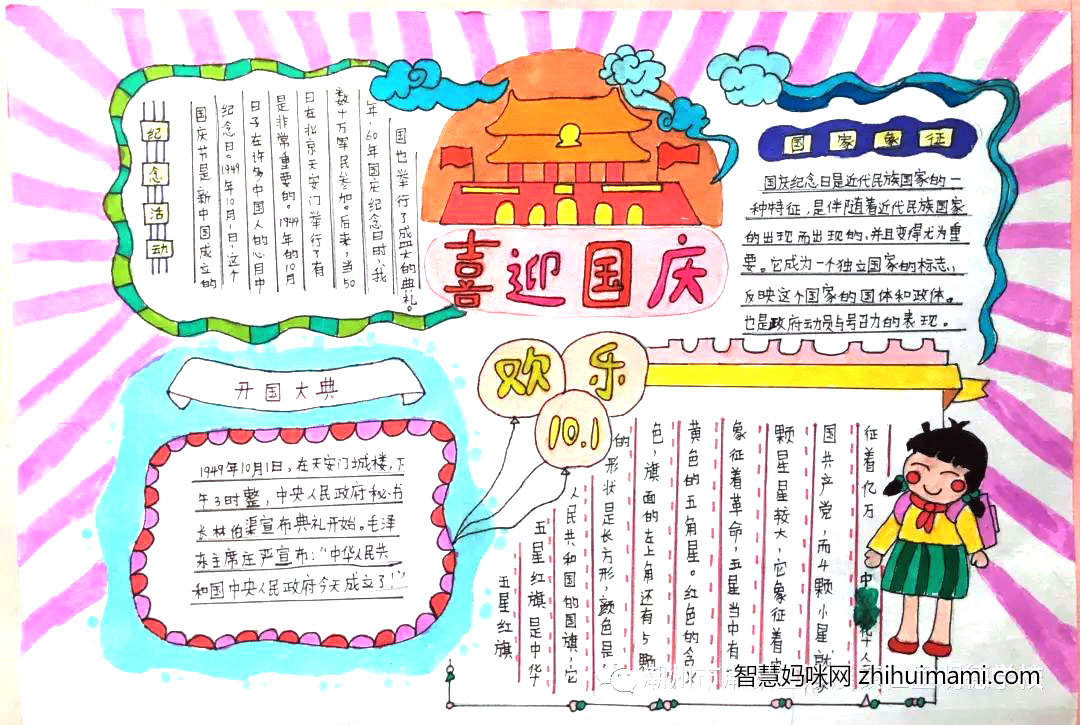 喜迎国庆
欢乐
10.1
纪念活动
国庆节是新中国成立的
纪念日。1949年10月1日,这个
日子在许多中国人的心目中
是非常重要的。1949年的10月
日在北京天安门举行了有
数十万军民参加。后来,当50
年、60年国庆纪念日时,我
国也举行了盛大的典礼。
国家象征
国庆纪念日是近代民族国家的一
种特征,是伴随着近代民族国家
的出现而出现的,并且变得尤为重
要。它成为一个独立国家的标志,
反映这个国家的国体和政体。
也是政府动员与号召力的表现。
开国大典
1949年10月1日,在天安门城楼,下
午3时整,中央人民政府秘书
长林伯渠宣布典礼开始。毛泽
东主席庄严宣布:“中华人民共
和国中央人民政府今天成立了!”
五星红旗
五星红旗是中华
人民共和国的国旗,它
的形状是长方形,颜色是
色,旗面的左上角还有5颗
黄色的五角星。红色的含义
象征着革命,五星当中有
颗星星较大,它象征着中
国共产党,而4颗小星就
征着亿万中华人
智慧妈咪网 zhihuimami.com